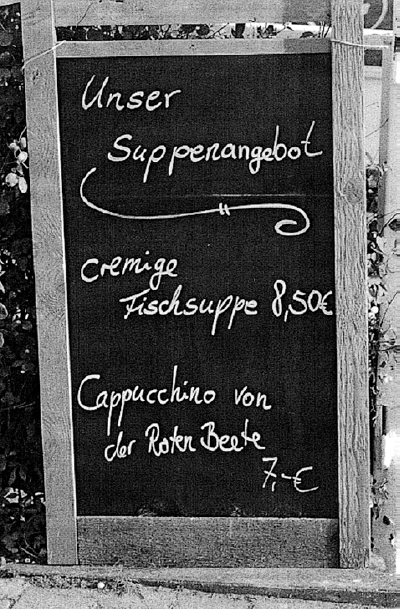 Unser
Suppenangebot
cremige
Fischsuppe 8,50€
Cappucchino von
der Roten Beete
7,-€